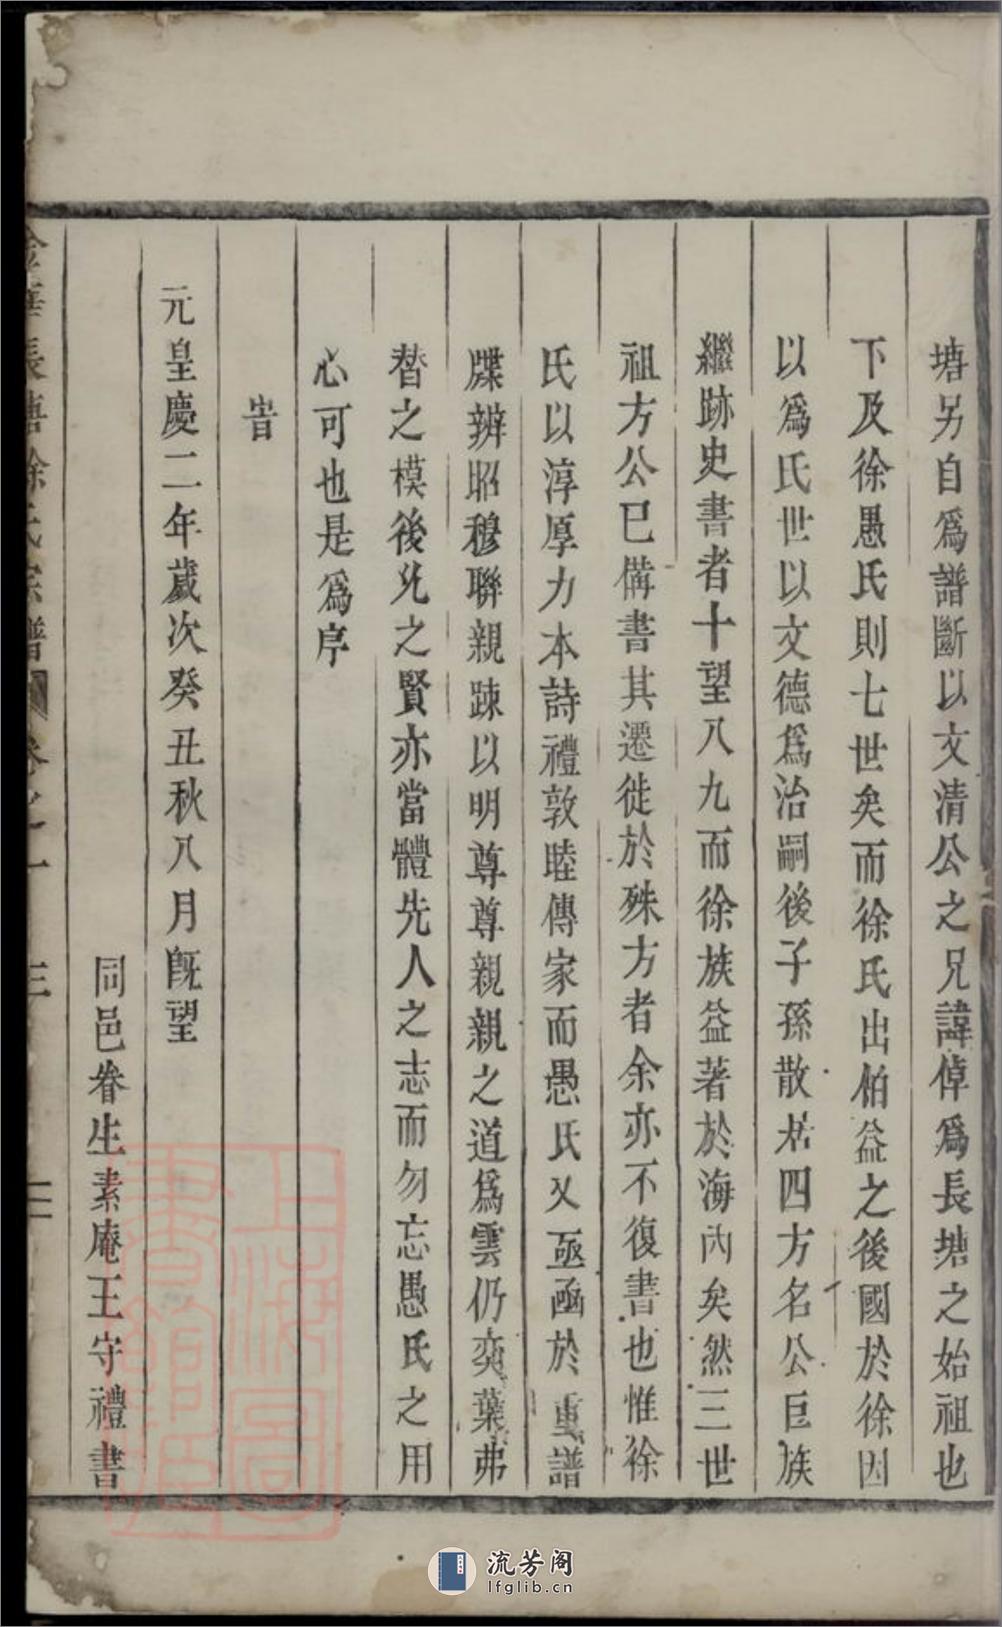 塘另自爲譜斷以文清公之兄諱倬爲長塘之始祖也
下及徐愚氏則七世矣而徐氏出伯益之後國於徐因
以爲氏世以文德爲治嗣後子孫散居四方名公巨族
繼跡史書者十望八九而徐族益著於海內矣然三世
祖方公已備書其遷徙於殊方者余亦不復書也惟徐
氏以淳厚力本詩禮敦睦傳家而愚氏又亟亟於重譜
牒辨昭穆聯親疎以明尊尊親親之道爲雲仍奕葉弗
替之模後允之賢亦當體先人之志而勿忘愚氏之用
心可也是爲序
旹
元皇慶二年歲次癸丑秋八月旣望
同邑眷生素庵王守禮書
金華長塘徐氏宗譜 卷之一 序 三
上海圖書館藏
流芳阁
lfglib.cn